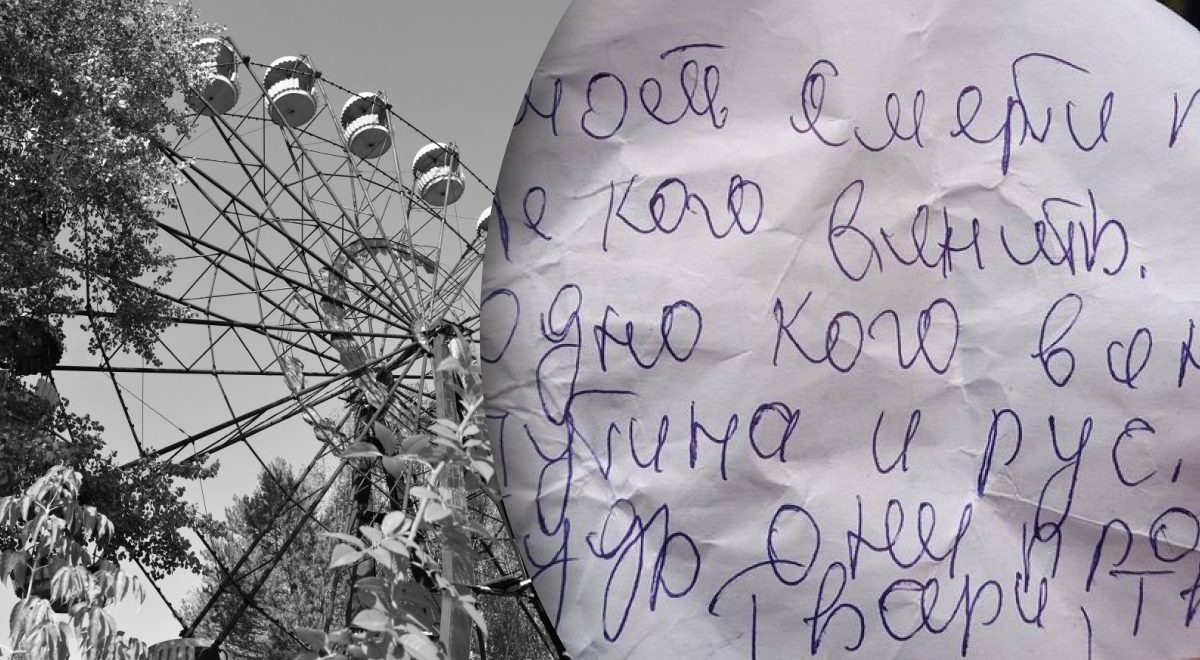 моей Смерти
не кого винить.
Одно кого вен
путина и рус.
удь они про
Твари, т